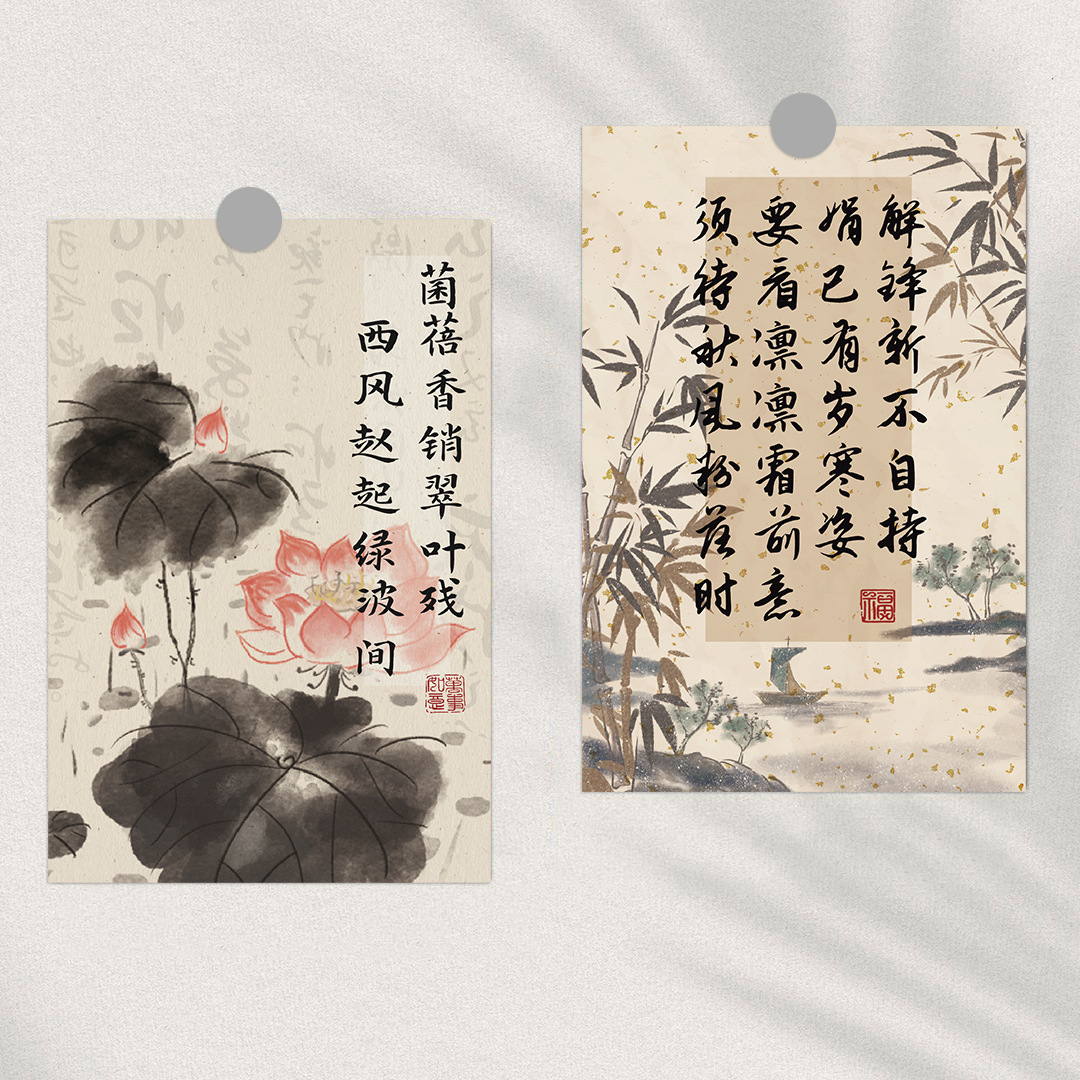 菌蓓香销翠叶残
西风赵起绿波间
萬事如意
解锋新不自持
娟已有岁寒姿
要看凛凛霜前意
须待秋风粉落时
福